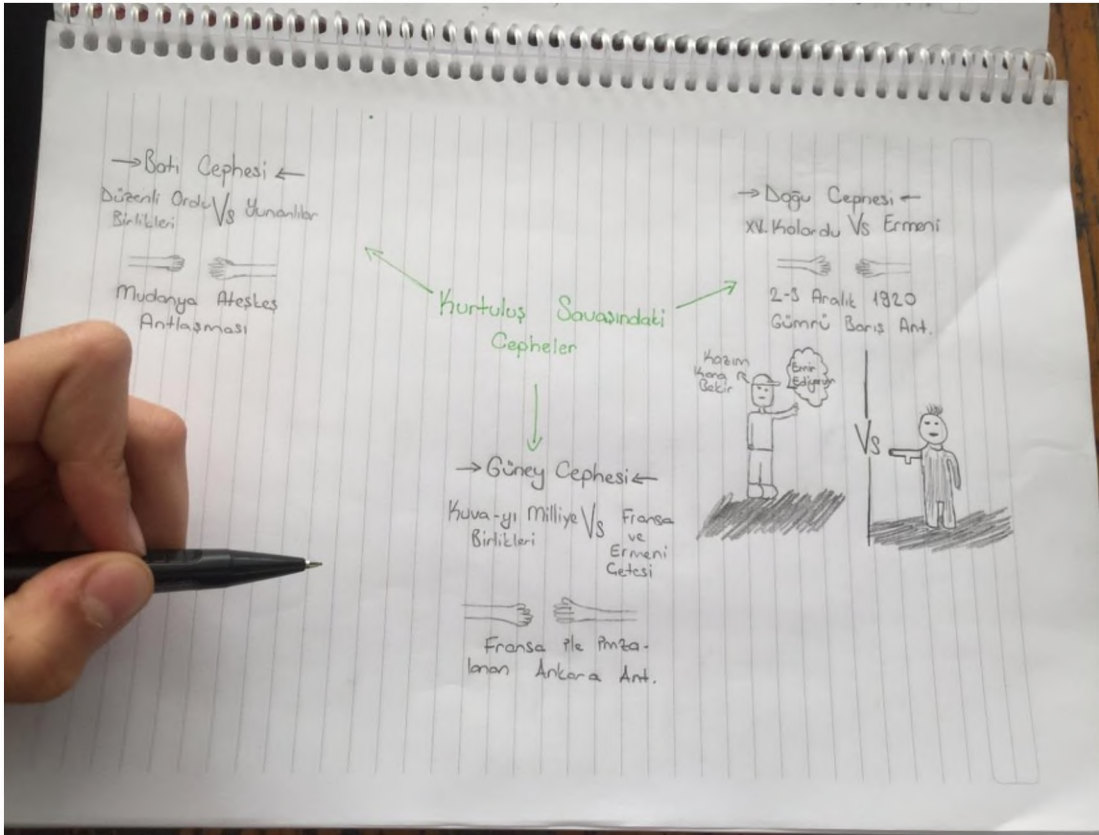 →Batı Cephesi←
Düzenli Ordu Vs Yunanlılar
Birlikleri
Mudanya Ateşkes
Antlaşması
Kurtuluş Savaşındaki
Cepheler
→Doğu Cephesi←
XV. Kolordu Vs Ermeni
2-3 Aralık 1920
Gümrü Barış Ant.
Kazım
Kara
Bekir
Emir
Ediyorum
Vs
→Güney Cephesi←
Kuva-yı Milliye Vs Fransa
Birlikleri ve
Ermeni
Çetesi
Fransa ile imza-
lanan Ankara Ant.